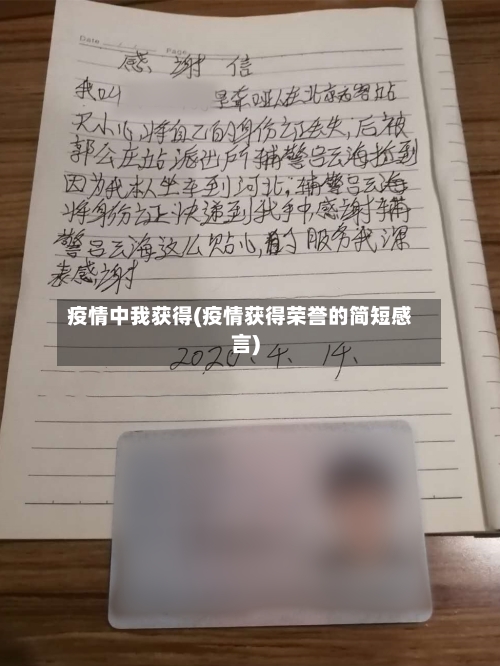 Date Page
感谢信
我叫 是聋哑人在北京西客站
不小心将自己的身份证丢失,后被
郭公庄站派出所辅警吕云海捡到
因为我本人坐车到河北,辅警吕云海
将身份证快递到我手中,感谢辅
警吕云海这么贴心的服务我深
表感谢
疫情中我获得(疫情获得荣誉的简短感
言)
2020.4.14.